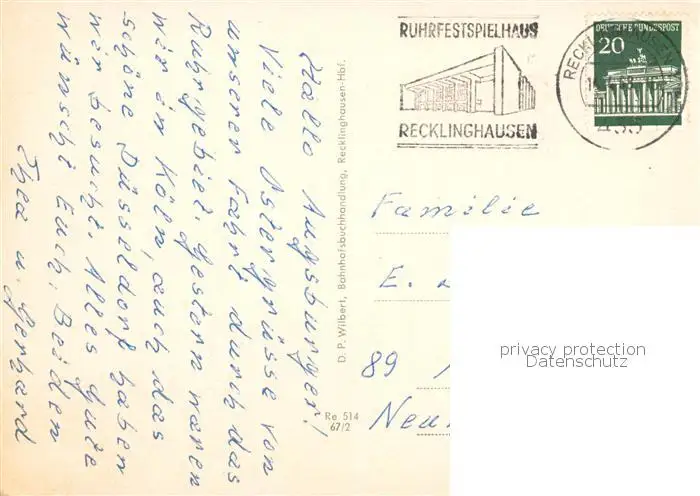 Hallo Augsburger!
Viele Ostergrüsse von
unserer Fahrt durch das
Ruhrgebiet. Gestern waren
wir in Köln, auch das
schöne Düsseldorf haben
wir besucht. Alles Gute
wünscht Euch, Beiden
Thea u. Gerhard
D. P. Wilbert, Bahnhofsbuchhandlung, Recklinghausen-Hbf.
Re 514
67/2
RUHRFESTSPIELHAUS
RECKLINGHAUSEN
DEUTSCHE BUNDESPOST
20
RECKL
435
Familie
E.
89
Neu
privacy protection
Datenschutz